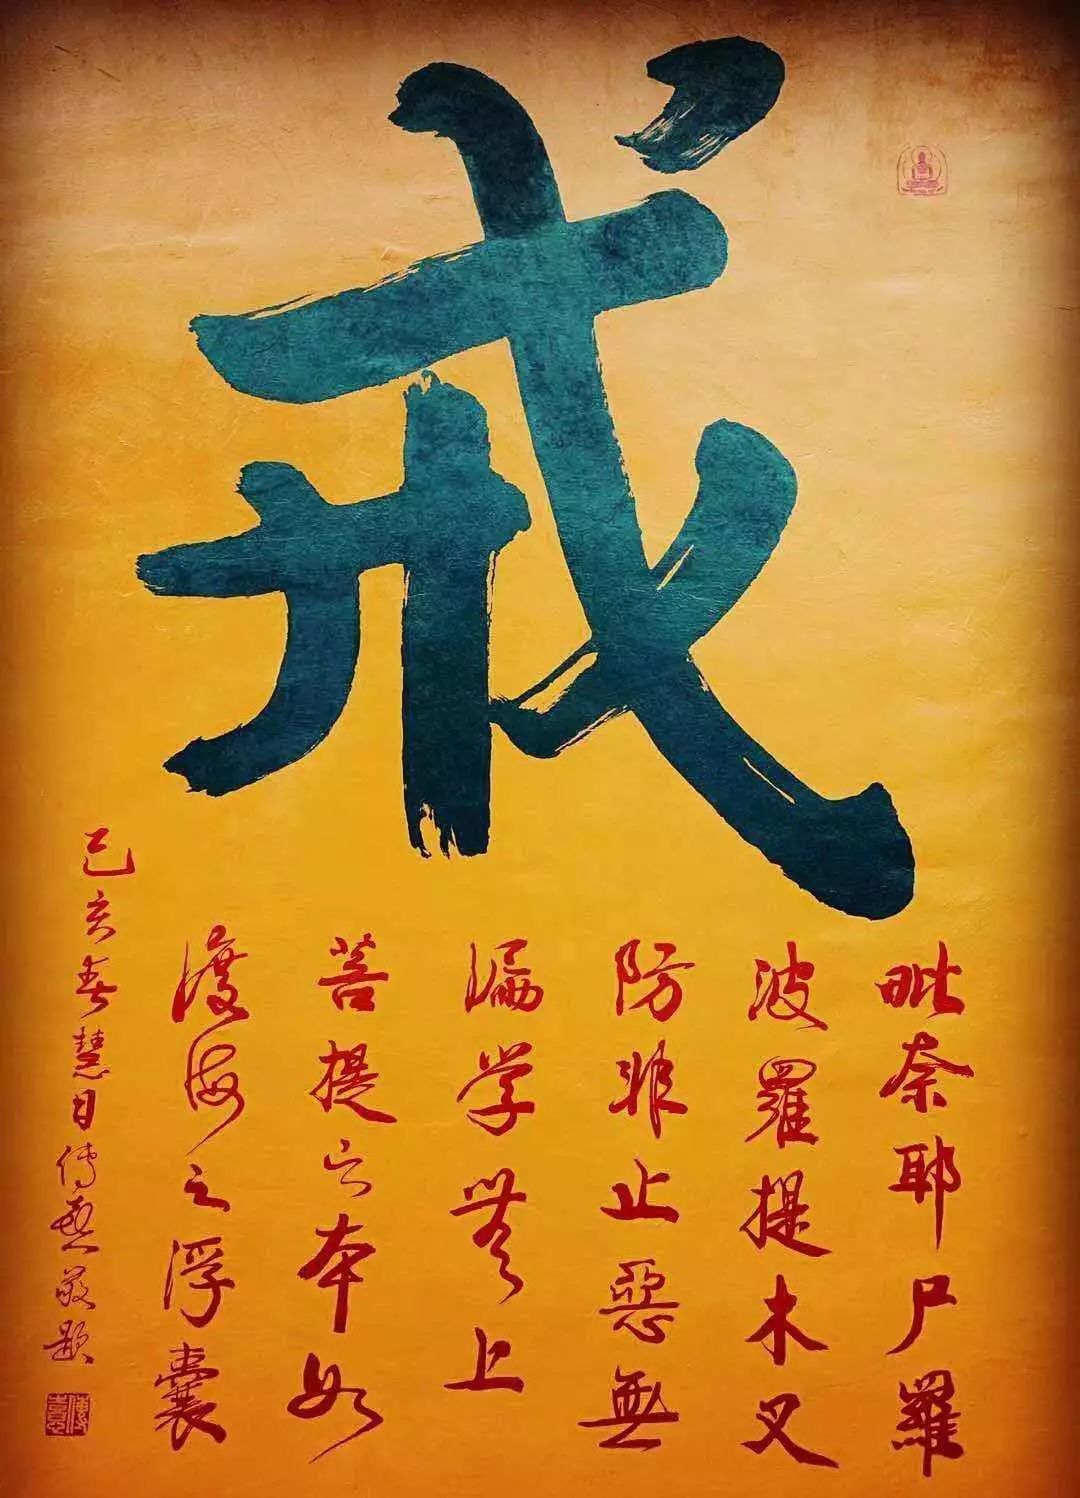 戒
毗奈耶尸羅
波羅提木叉
防非止惡無
漏学無上
菩提之本如
渡海之浮囊
己亥春慧日傳熹敬题